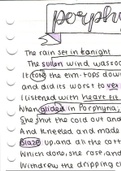 porphy
The rain set in tonight
The sullen wind was soo
It tore the elm-tops down
and did its worst to vex
I listened with heart fit
When glided in Porphyria
She shut the cold out and
And kneeled and made
Blaze up and all the cott
Which done, she rose, and
Withdrew the dripping c